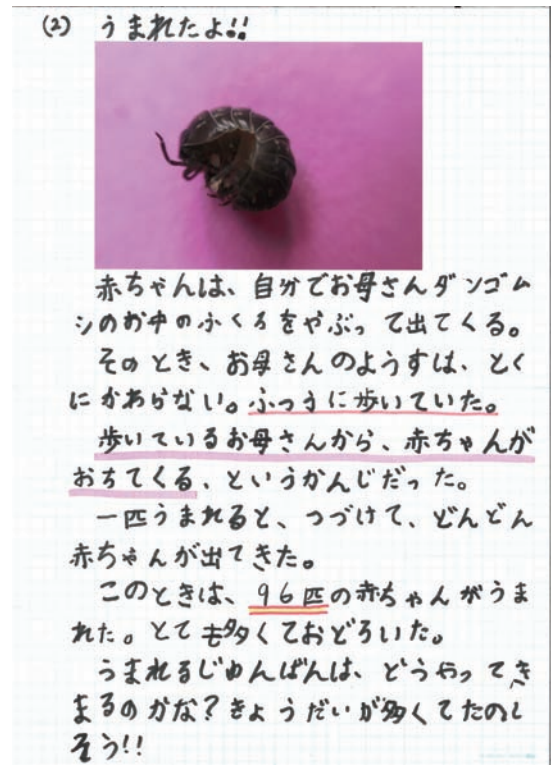 (2) うまれたよ!!
赤ちゃんは、自分でお母さんダンゴム
シのお中のふくろをやぶって出てくる。
そのとき、お母さんのようすは、とく
にかわらない。ふつうに歩いていた。
歩いているお母さんから、赤ちゃんが
おちてくる、というかんじだった。
一匹うまれると、つづけて、どんどん
赤ちゃんが出てきた。
このときは、96匹の赤ちゃんがうま
れた。とても多くておどろいた。
うまれるじゅんばんは、どうやってき
まるのかな?きょうだいが多くてたのし
そう!!